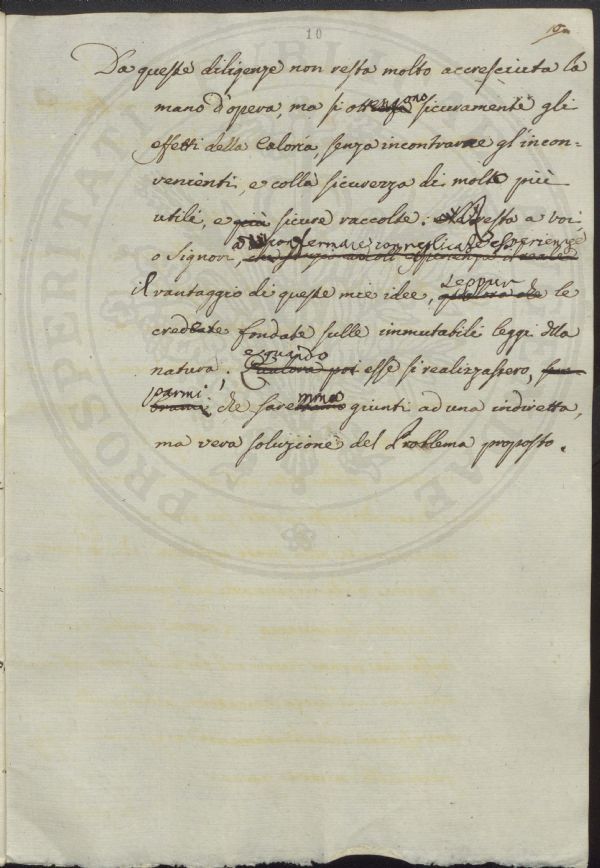 10
Da queste diligenze non resta molto accresciuta la
mano d'opera, ma si ottengono sicuramente gli
effetti della Caloria, senza incontrarne gl'incon=
venienti, e colla sicurezza di molto più
utili, e più sicure raccolte: resta a voi,
a confermare con replicate esperienze
o Signori,
il vantaggio di queste mie idee, seppur le
credeste fondate sulle immutabili leggi della
natura; e quando esse si realizzassero,
parmi, che saremmo giunti ad una indiretta,
ma vera soluzione del Problema proposto.
PROSPERITATI PUBLICAE